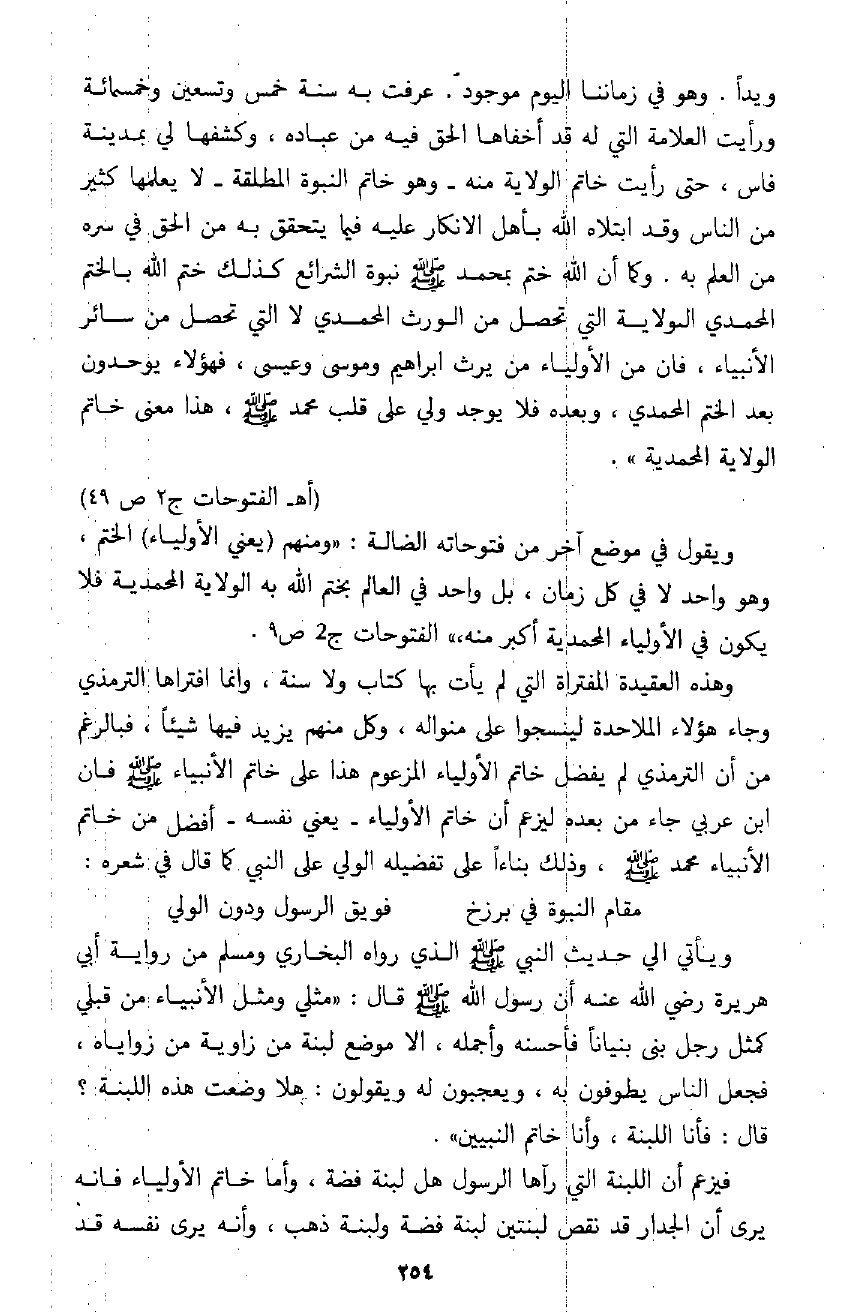 ويداً . وهو في زماننا اليوم موجود . عرفت به سنة خمس وتسعين وخمسمائة
ورأيت العلامة التي له قد أخفاها الحق فيه من عباده ، وكشفها لي بمدينة
فاس ، حتى رأيت خاتم الولاية منه - وهو خاتم النبوة المطلقة - لا يعلمها كثير
من الناس وقد ابتلاه الله بأهل الانكار عليه فيما يتحقق به من الحق في سره
من العلم به . وكما أن الله ختم بمحمد ﷺ نبوة الشرائع كذلك ختم الله بالختم
المحمدي الولاية التي تحصل من الورث المحمدي لا التي تحصل من سائر
الأنبياء ، فان من الأولياء من يرث ابراهيم وموسى وعيسى ، فهؤلاء يوجدون
بعد الختم المحمدي ، وبعده فلا يوجد ولي على قلب محمد ﷺ ، هذا معنى خاتم
الولاية المحمدية » .
(أهـ الفتوحات ج٢ ص ٤٩)
ويقول في موضع آخر من فتوحاته الضالة : «ومنهم (يعني الأولياء) الختم ،
وهو واحد لا في كل زمان ، بل واحد في العالم يختم الله به الولاية المحمدية فلا
يكون في الأولياء المحمدية أكبر منه،» الفتوحات ج2 ص٩ .
وهذه العقيدة المفتراة التي لم يأت بها كتاب ولا سنة ، وانما افتراها الترمذي
وجاء هؤلاء الملاحدة لينسجوا على منواله ، وكل منهم يزيد فيها شيئاً ، فبالرغم
من أن الترمذي لم يفضل خاتم الأولياء المزعوم هذا على خاتم الأنبياء ﷺ فان
ابن عربي جاء من بعده ليزعم أن خاتم الأولياء - يعني نفسه - أفضل من خاتم
الأنبياء محمد ﷺ ، وذلك بناءاً على تفضيله الولي على النبي كما قال في شعره :
مقام النبوة في برزخ فويق الرسول ودون الولي
ويأتي الي حديث النبي ﷺ الذي رواه البخاري ومسلم من رواية أبي
هريرة رضي الله عنه أن رسول الله ﷺ قال : «مثلي ومثل الأنبياء من قبلي
كمثل رجل بنى بنياناً فأحسنه وأجمله ، الا موضع لبنة من زاوية من زواياه ،
فجعل الناس يطوفون به ، ويعجبون له ويقولون : هلا وضعت هذه اللبنة ؟
قال : فأنا اللبنة ، وأنا خاتم النبيين» .
فيزعم أن اللبنة التي رآها الرسول هل لبنة فضة ، وأما خاتم الأولياء فانه
يرى أن الجدار قد نقص لبنتين لبنة فضة ولبنة ذهب ، وأنه يرى نفسه قد
٢٥٤